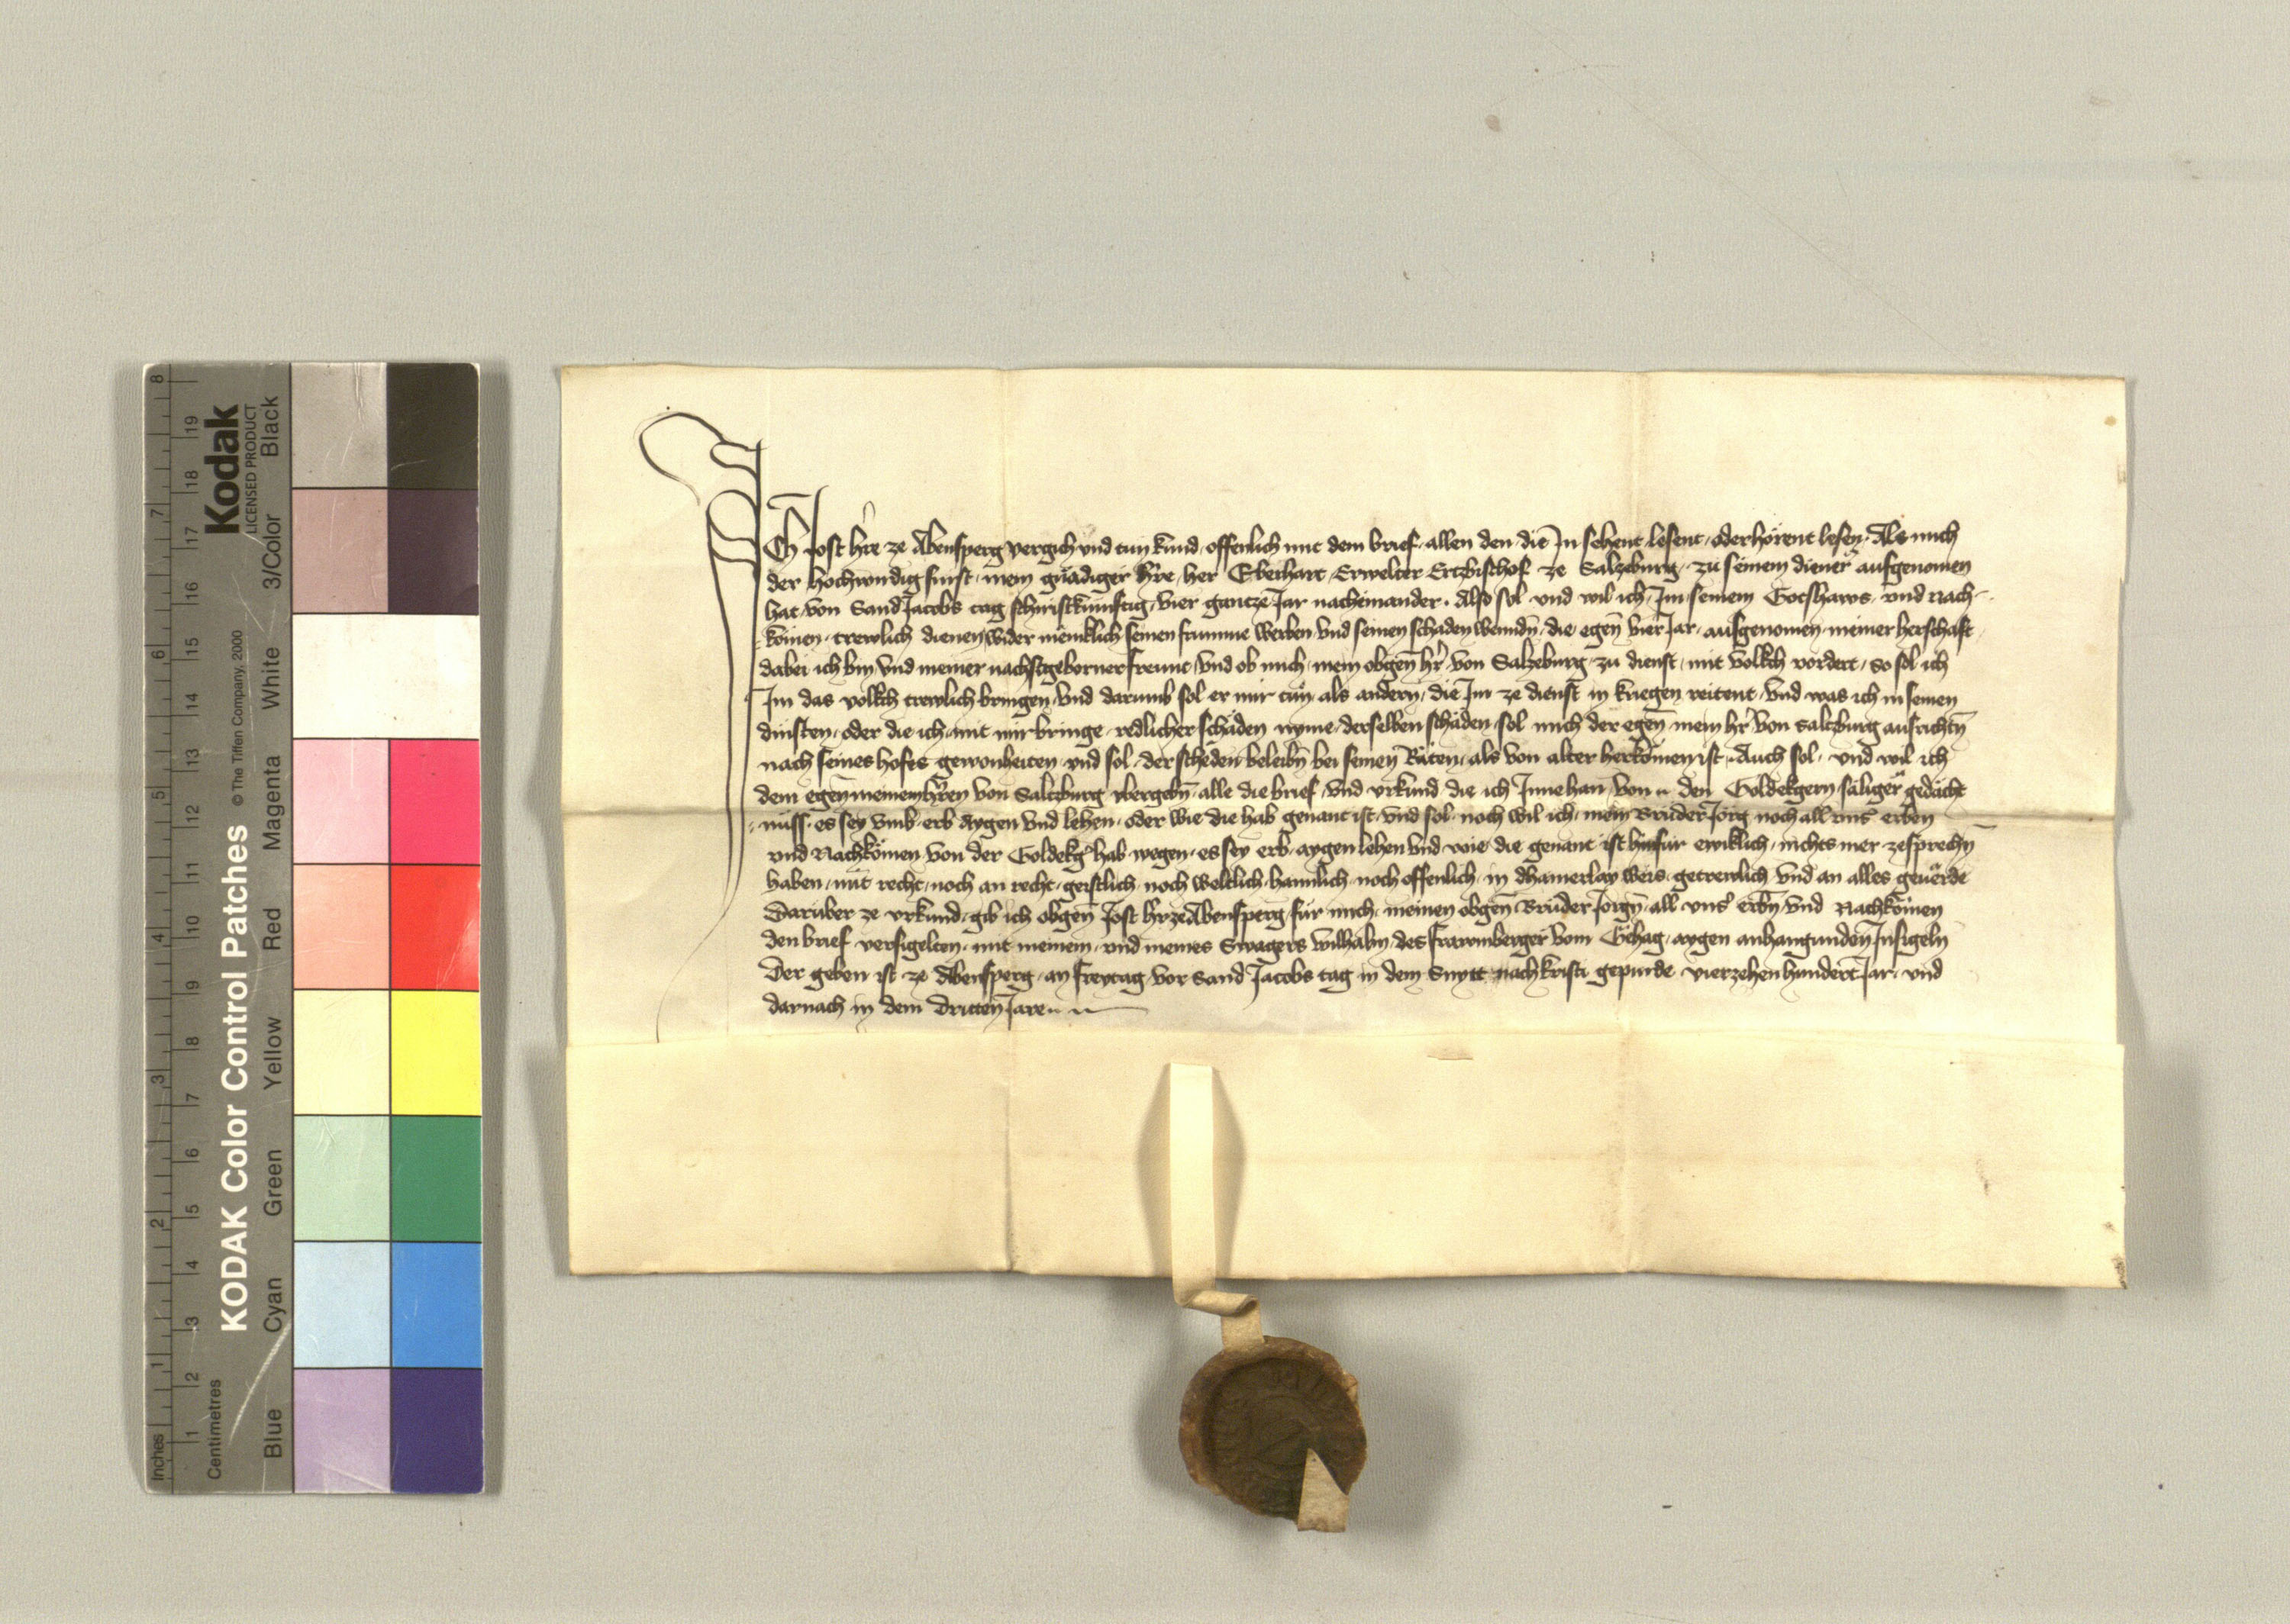 Ich Jost hře ze Abensperg vergich vnd tun kund offenlich mit dem brief allen den die In sehent lesent oder hörent lesen Als mich
der hochwirdig fürst mein gnädiger hře her Eberhart Erwelter Ertzbischof ze Salzburg zu seinem diener aufgenomen
hat von Sand Jacobs tag schiristkünftig vier gantze Jar nacheinander. Also sol vnd wil ich Im seinem Gotshaws vnd nach
komen trewlich dienen wider mēniklich seinen frummē werben vnd seinen schaden wenndn̄ die egen̄ vier Jar ausgenomen meiner herschaft
dabei ich bin vnd meiner nachstgeborner freunt vnd ob mich mein obgen̄ hr̄ von Salzburg zu dienst mit volkch vordert so sol ich
Im das volkch trewlich bringen vnd darumb sol er mir tun als andern die Im ze dienst in kriegen reitent vnd was ich in seinen
dinsten oder die ich mit mir bringe redlicher schäden nyme derselben schäden sol mich der egen̄ mein hr̄ von Saltzburg ausrichtn̄
nach seines hofes gewonheiten vnd sol der schëden beleibn̄ bei seinen Räten als von alter herkomen ist Auch sol vnd wil ich
dem egen̄ meinem hr̄en von Saltzburg vbergebn̄ alle die brief vnd vrkund die ich Innehan von den Goldekgern säliger gedächt
nüss es sey vmb erb aygen vnd lehen oder wie die hab genant ist vnd sol noch wil ich mein Brüder Jörg noch all vns̄ erben
vnd Nachkömen von der Goldekḡ hab wegen es sey erb aygen lehen vnd wie die genant ist hinfür ewiklich nichts mer zesprechn̄
haben mit recht noch an recht geistlich noch weltlich haimlich noch offenlich in dhainerlay weis getrewlich vnd an alles geuërde
Darüber ze vrkund gib ich obgen̄ Jost hr̄ ze Abensperg für mich meinen obgen̄ Brüder Jorgn̄ all vns̄ erbn̄ vnd Nachkömen
den brief versigelten mit meinem vnd meines Swagers Wilhalm des Frawnberger vom Hag aygen anhangunden Insigeln
Der geben ist ze Abensperg an freytag vor Sand Jacobs tag in dem Snytt nach kristi gepurde vierzehenhundert Jar vnd
darnach in dem dritten Jare
KODAK Color Control Patches © The Tiffen Company, 2000
Kodak
LICENSED PRODUCT
Blue Cyan Green Yellow Red Magenta White 3/Color Black
Inches 1 2 3 4 5 6 7 8
Centimetres 1 2 3 4 5 6 7 8 9 10 11 12 13 14 15 16 17 18 19